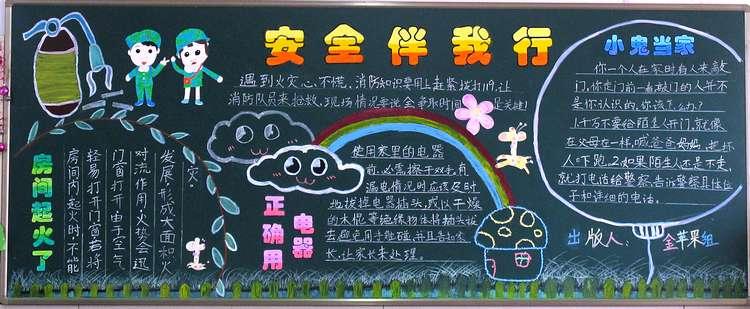 安全伴我行
遇到火灾心不慌,消防知识要用上赶紧拨打119,让
消防队员来抢救,现场情况要说全争取时间是关键!
房间起火了
房间内起火时,不能
轻易打开门窗,
门窗打开由于空气
对流作用,火势会迅
发展,形成大面积火
灾。
正确用电器
使用家里的电器
前,必需擦干双手,有
漏电情况时应该及时
地拔掉电器插头,或以干燥
的木棍等绝缘物体将插头拔
去避免用手触碰,并且告知家
长,让家长来处理。
小鬼当家
你一个人在家时有人来敲
门,你走门前一看敲门的人并不
是你认识的,你该怎么办?
1千万不要给陌生人开门,就像
在父母在一样,喊爸爸妈妈,把坏
人吓跑。2如果陌生人还是不走,
就打电话给警察,告诉警察具体位
子和详细的电话。
出版人:金苹果组